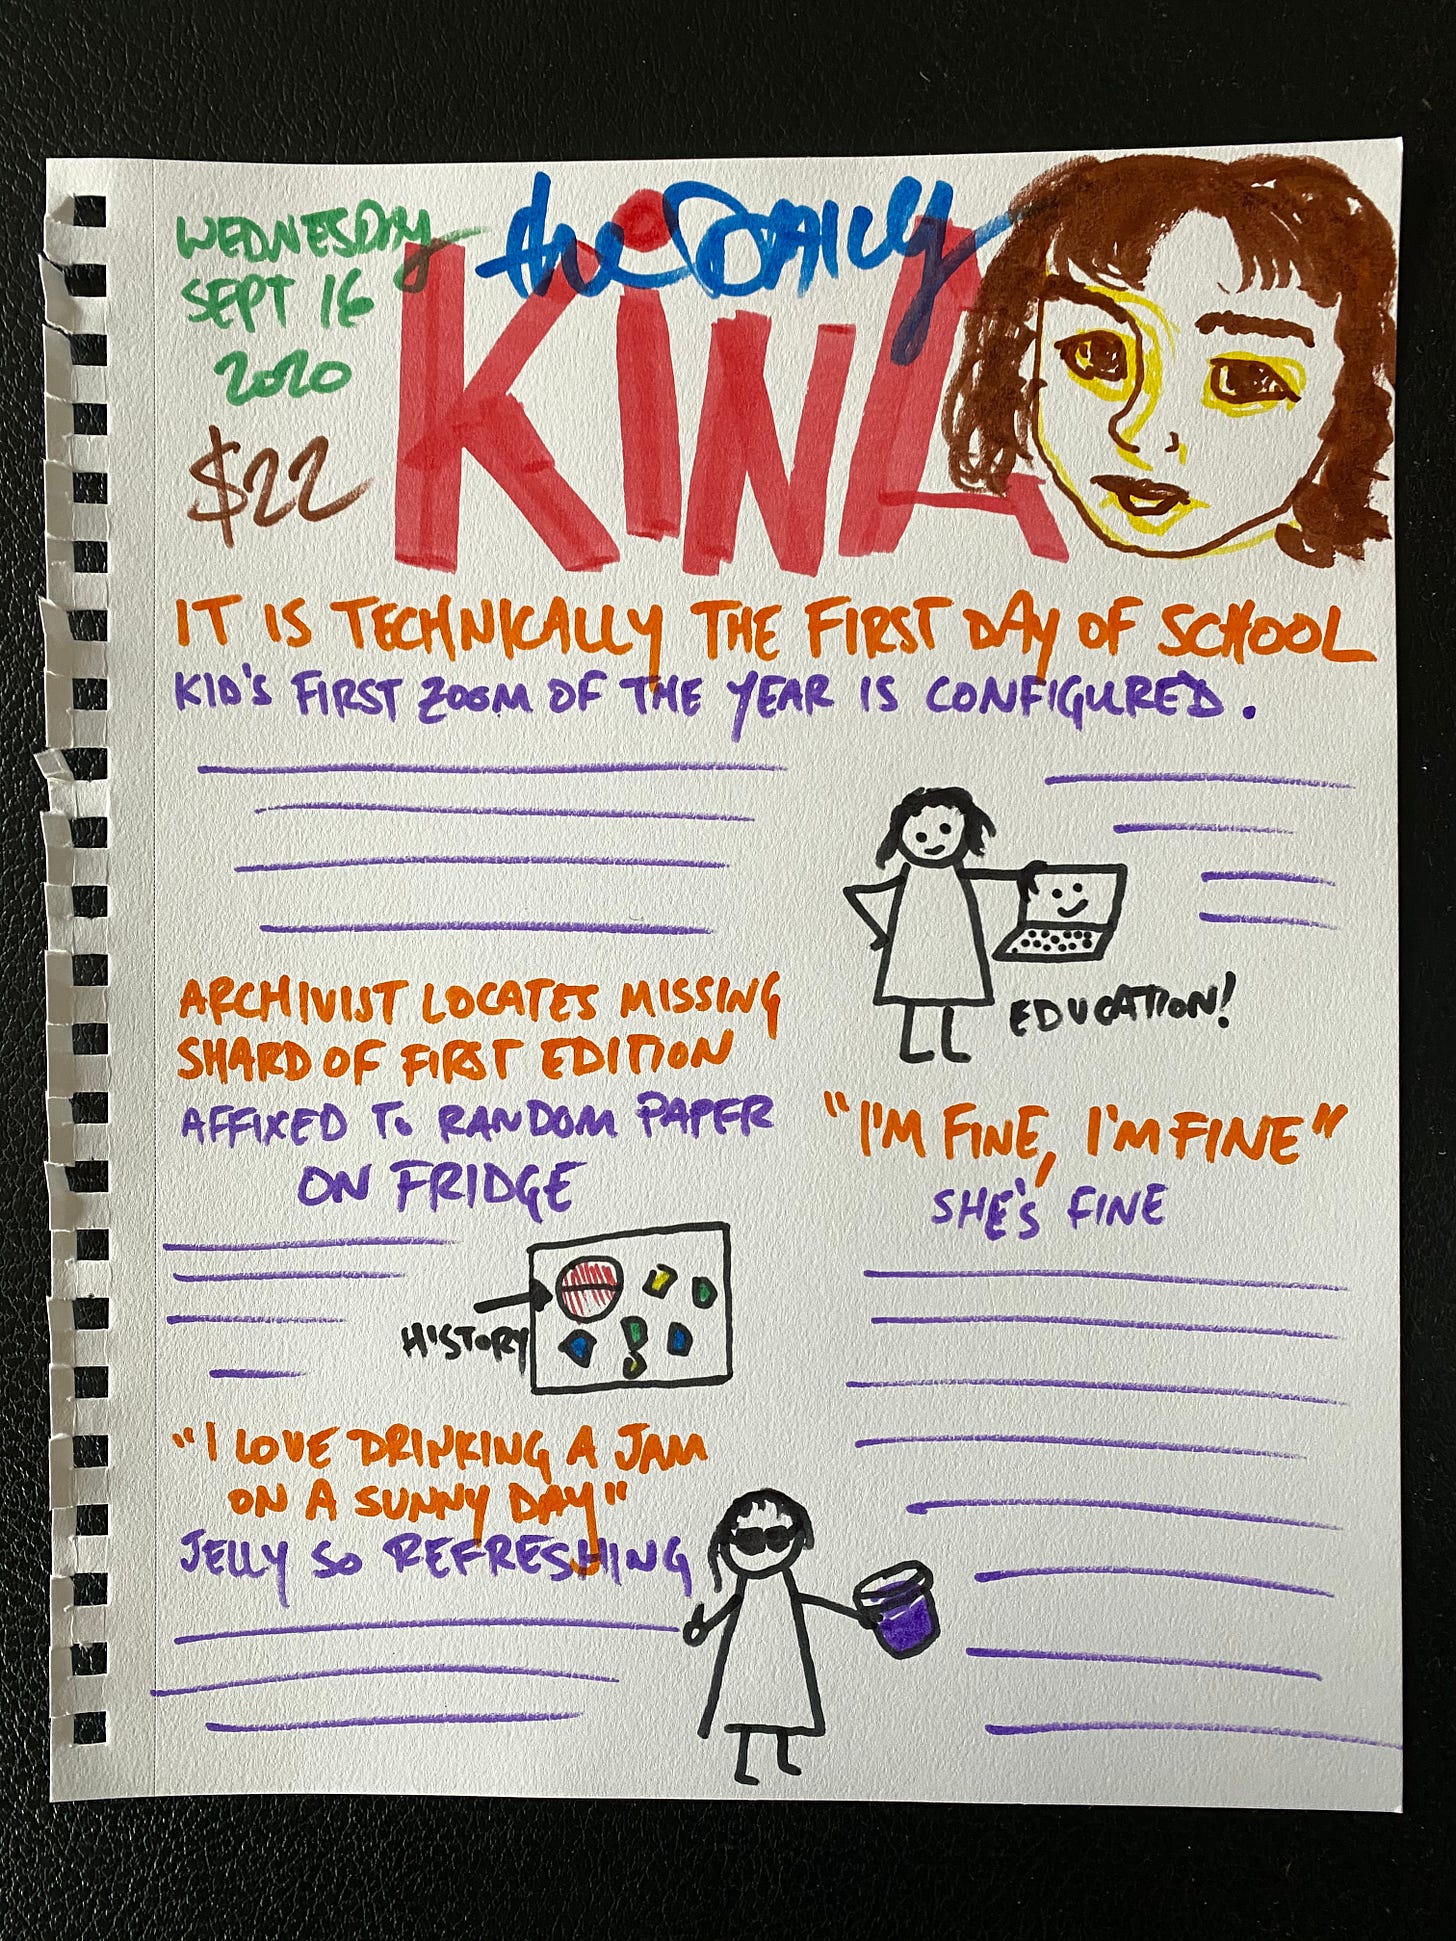 WEDNESDAY
SEPT 16
2020
$22
the DAILY
KINA
IT IS TECHNICALLY THE FIRST DAY OF SCHOOL
KID'S FIRST ZOOM OF THE YEAR IS CONFIGURED.
EDUCATION!
ARCHIVIST LOCATES MISSING
SHARD OF FIRST EDITION
AFFIXED TO RANDOM PAPER
ON FRIDGE
HISTORY
"I LOVE DRINKING A JAM
ON A SUNNY DAY"
JELLY SO REFRESHING
"I'M FINE, I'M FINE"
SHE'S FINE